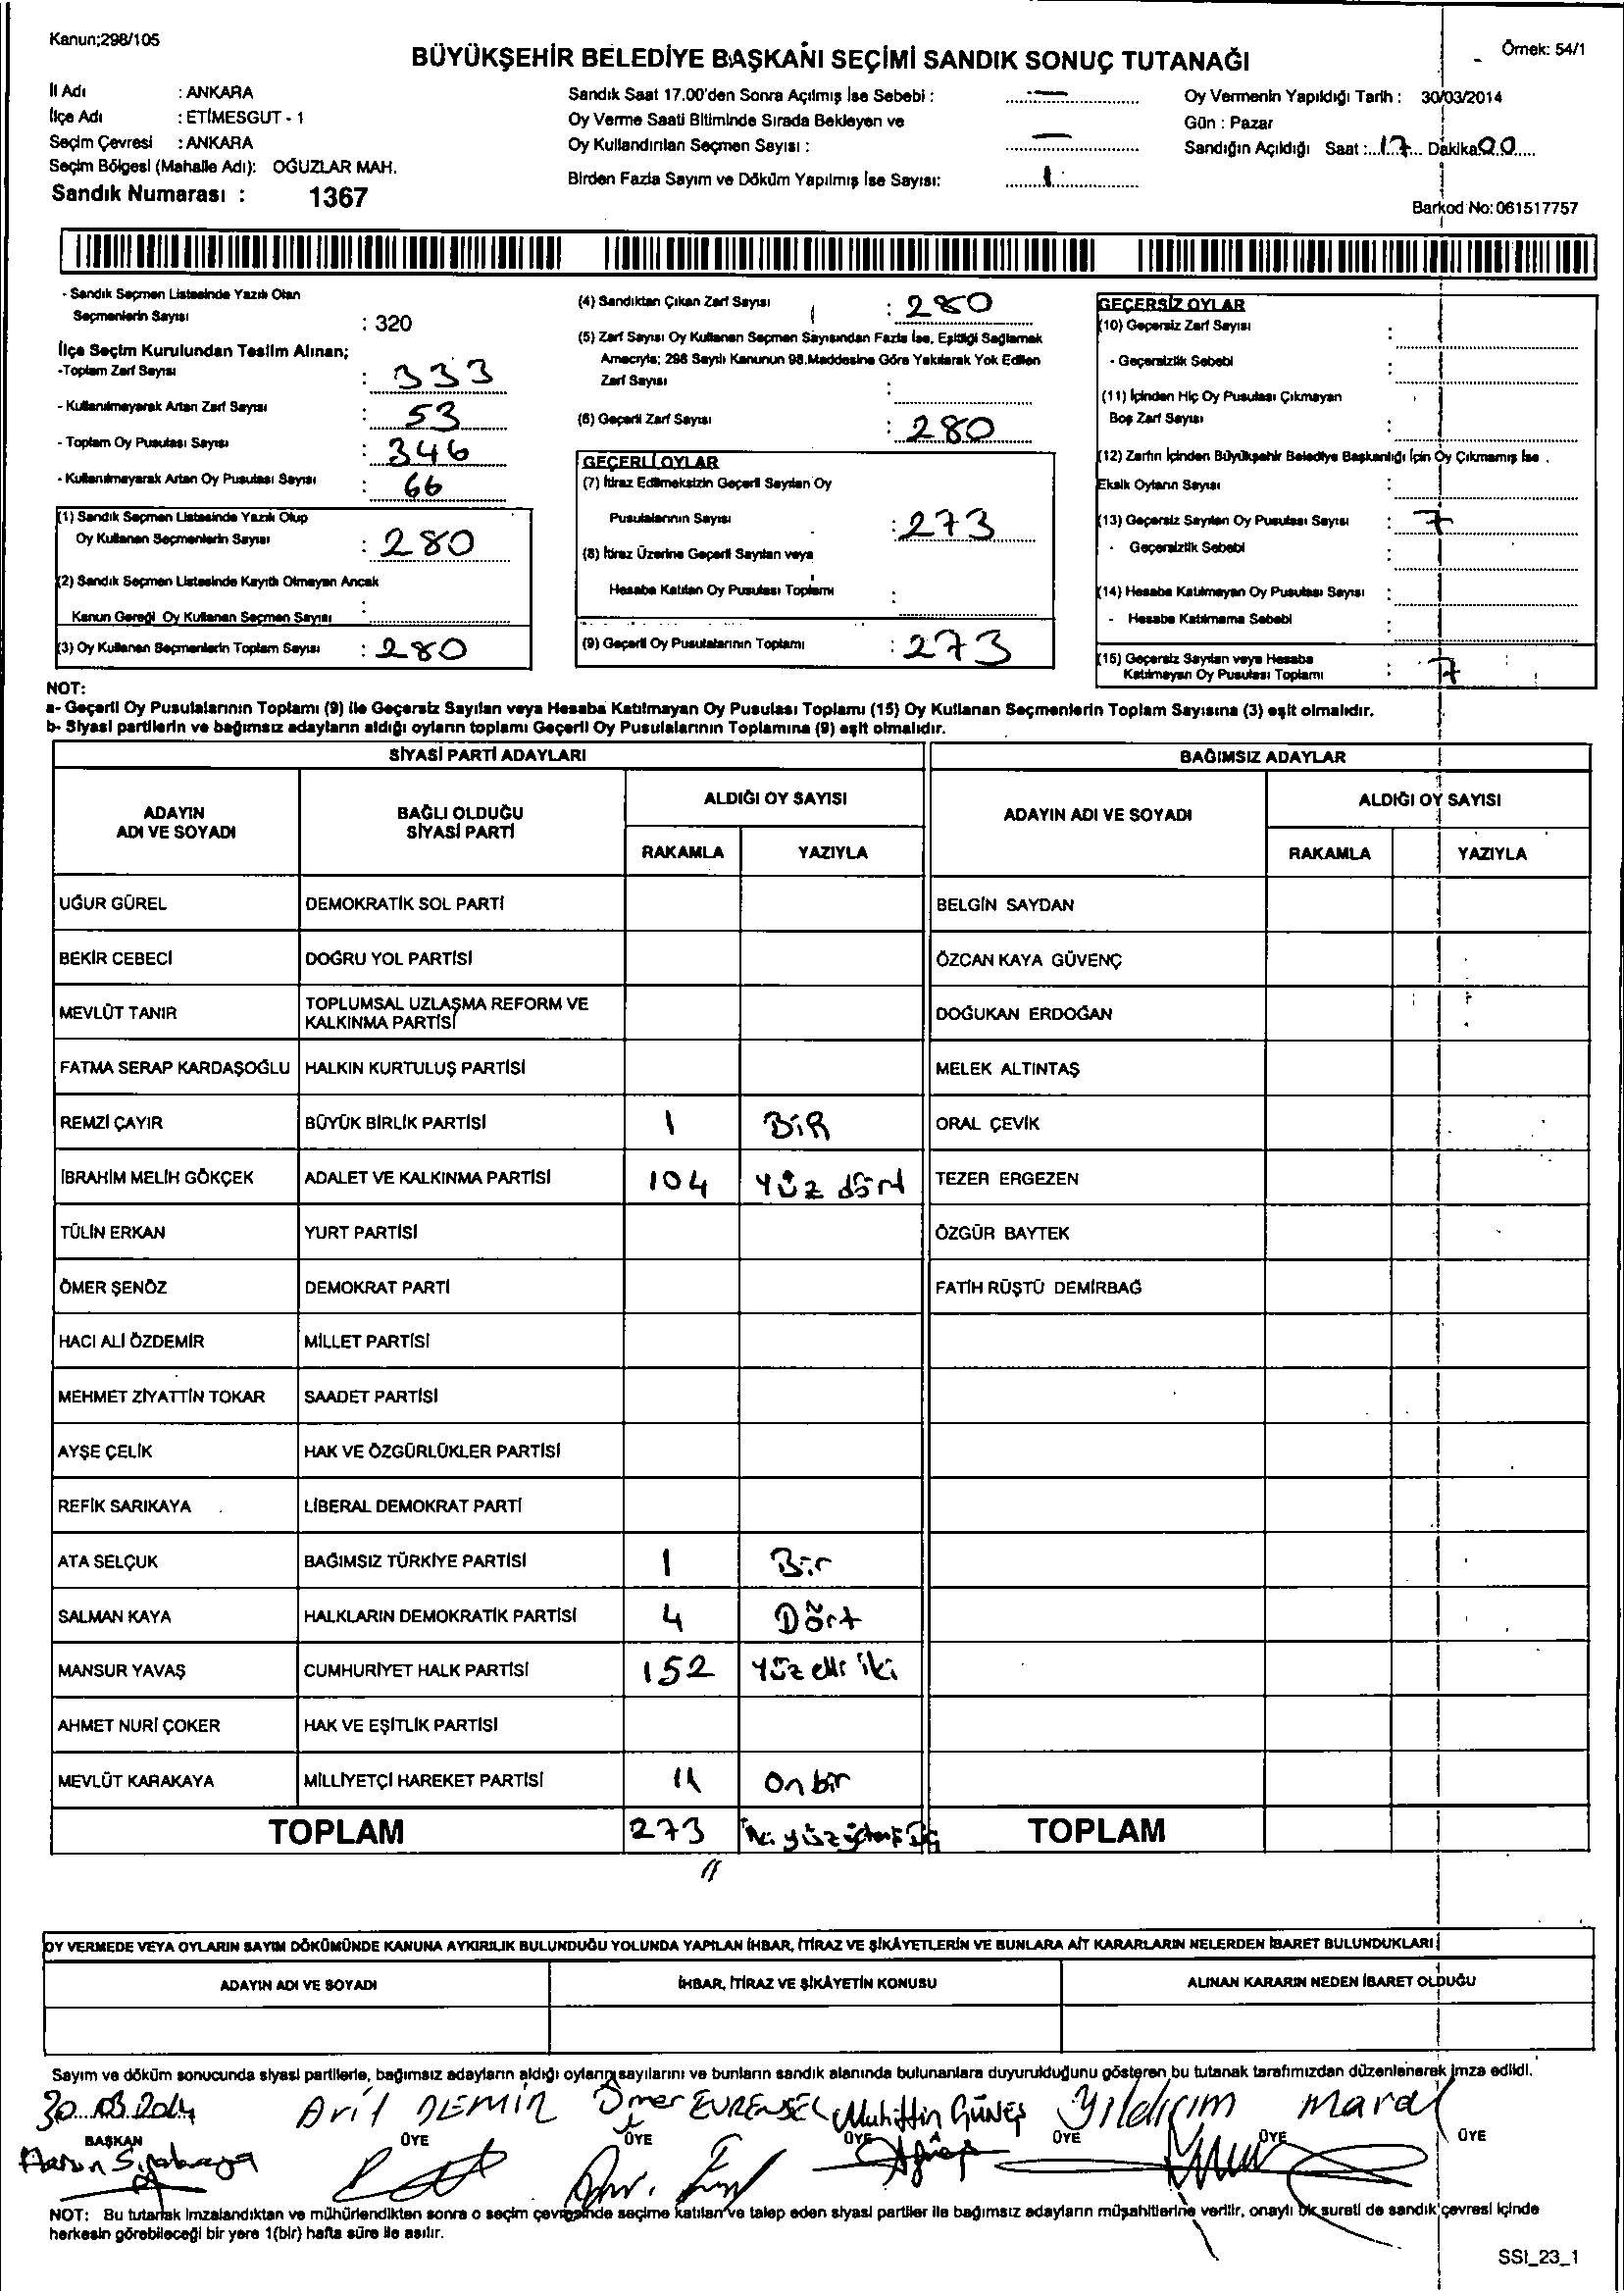 Kanun;298/105
Örnek: 54/1
BÜYÜKŞEHİR BELEDİYE BAŞKANI SEÇİMİ SANDIK SONUÇ TUTANAĞI
İl Adı : ANKARA
İlçe Adı : ETİMESGUT - 1
Seçim Çevresi : ANKARA
Seçim Bölgesi (Mahalle Adı): OĞUZLAR MAH.
Sandık Numarası : 1367
Sandık Saat 17.00'den Sonra Açılmış İse Sebebi : —
Oy Verme Saati Bitiminde Sırada Bekleyen ve
Oy Kullandırılan Seçmen Sayısı : —
Birden Fazla Sayım ve Döküm Yapılmış İse Sayısı: 1
Oy Vermenin Yapıldığı Tarih : 30/03/2014
Gün : Pazar
Sandığın Açıldığı Saat :...17... Dakika 00
Barkod No: 061517757
- Sandık Seçmen Listesinde Yazılı Olan
Seçmenlerin Sayısı : 320
İlçe Seçim Kurulundan Teslim Alınan;
-Toplam Zarf Sayısı : 333
- Kullanılmayarak Artan Zarf Sayısı : 53
- Toplam Oy Pusulası Sayısı : 346
- Kullanılmayarak Artan Oy Pusulası Sayısı : 66
(1) Sandık Seçmen Listesinde Yazılı Olup
Oy Kullanan Seçmenlerin Sayısı : 280
(2) Sandık Seçmen Listesinde Kayıtlı Olmayan Ancak
Kanun Gereği Oy Kullanan Seçmen Sayısı :
(3) Oy Kullanan Seçmenlerin Toplam Sayısı : 280
(4) Sandıktan Çıkan Zarf Sayısı : 280
(5) Zarf Sayısı Oy Kullanan Seçmen Sayısından Fazla İse, Eşitliği Sağlamak
Amacıyla; 298 Sayılı Kanunun 98.Maddesine Göre Yakılarak Yok Edilen
Zarf Sayısı :
(6) Geçerli Zarf Sayısı : 280
GEÇERLİ OYLAR
(7) İtiraz Edilmeksizin Geçerli Sayılan Oy
Pusulalarının Sayısı : 273
(8) İtiraz Üzerine Geçerli Sayılan veya
Hesaba Katılan Oy Pusulası Toplamı :
(9) Geçerli Oy Pusulalarının Toplamı : 273
GEÇERSİZ OYLAR
(10) Geçersiz Zarf Sayısı :
- Geçersizlik Sebebi :
(11) İçinden Hiç Oy Pusulası Çıkmayan
Boş Zarf Sayısı :
(12) Zarfın İçinden Büyükşehir Belediye Başkanlığı İçin Oy Çıkmamış İse .
Eksik Oyların Sayısı :
(13) Geçersiz Sayılan Oy Pusulası Sayısı : 7
- Geçersizlik Sebebi
(14) Hesaba Katılmayan Oy Pusulası Sayısı :
- Hesaba Katılmama Sebebi :
(15) Geçersiz Sayılan veya Hesaba
Katılmayan Oy Pusulası Toplamı : 7
NOT:
a- Geçerli Oy Pusulalarının Toplamı (9) ile Geçersiz Sayılan veya Hesaba Katılmayan Oy Pusulası Toplamı (15) Oy Kullanan Seçmenlerin Toplam Sayısına (3) eşit olmalıdır.
b- Siyasi partilerin ve bağımsız adayların aldığı oyların toplamı Geçerli Oy Pusulalarının Toplamına (9) eşit olmalıdır.
SİYASİ PARTİ ADAYLARI BAĞIMSIZ ADAYLAR
ADAYIN ADI VE SOYADI BAĞLI OLDUĞU SİYASİ PARTİ ALDIĞI OY SAYISI ADAYIN ADI VE SOYADI ALDIĞI OY SAYISI
RAKAMLA YAZIYLA RAKAMLA YAZIYLA
UĞUR GÜREL DEMOKRATİK SOL PARTİ BELGİN SAYDAN
BEKİR CEBECİ DOĞRU YOL PARTİSİ ÖZCAN KAYA GÜVENÇ
MEVLÜT TANIR TOPLUMSAL UZLAŞMA REFORM VE KALKINMA PARTİSİ DOĞUKAN ERDOĞAN
FATMA SERAP KARDAŞOĞLU HALKIN KURTULUŞ PARTİSİ MELEK ALTINTAŞ
REMZİ ÇAYIR BÜYÜK BİRLİK PARTİSİ 1 BİR ORAL ÇEVİK
İBRAHİM MELİH GÖKÇEK ADALET VE KALKINMA PARTİSİ 104 Yüz dört TEZER ERGEZEN
TÜLİN ERKAN YURT PARTİSİ ÖZGÜR BAYTEK
ÖMER ŞENÖZ DEMOKRAT PARTİ FATİH RÜŞTÜ DEMİRBAĞ
HACI ALİ ÖZDEMİR MİLLET PARTİSİ
MEHMET ZİYATTİN TOKAR SAADET PARTİSİ
AYŞE ÇELİK HAK VE ÖZGÜRLÜKLER PARTİSİ
REFİK SARIKAYA LİBERAL DEMOKRAT PARTİ
ATA SELÇUK BAĞIMSIZ TÜRKİYE PARTİSİ 1 Bir
SALMAN KAYA HALKLARIN DEMOKRATİK PARTİSİ 4 Dört
MANSUR YAVAŞ CUMHURİYET HALK PARTİSİ 152 Yüz elli iki
AHMET NURİ ÇOKER HAK VE EŞİTLİK PARTİSİ
MEVLÜT KARAKAYA MİLLİYETÇİ HAREKET PARTİSİ 11 On bir
TOPLAM 273 TOPLAM
OY VERMEDE VEYA OYLARIN SAYIM DÖKÜMÜNDE KANUNA AYKIRILIK BULUNDUĞU YOLUNDA YAPILAN İHBAR, İTİRAZ VE ŞİKÂYETLERİN VE BUNLARA AİT KARARLARIN NELERDEN İBARET BULUNDUKLARI
ADAYIN ADI VE SOYADI İHBAR, İTİRAZ VE ŞİKÂYETİN KONUSU ALINAN KARARIN NEDEN İBARET OLDUĞU
Sayım ve döküm sonucunda siyasi partilerle, bağımsız adayların aldığı oyların sayılarını ve bunların sandık alanında bulunanlara duyurulduğunu gösteren bu tutanak tarafımızdan düzenlenerek imza edildi.
30.03.2014 Arif DEMİR Ömer EVRENSEL Muhittin GÜNEŞ Yıldırım Maral
BAŞKAN ÜYE ÜYE ÜYE ÜYE ÜYE ÜYE
NOT: Bu tutanak imzalandıktan ve mühürlendikten sonra o seçim çevresinde seçime katılan ve talep eden siyasi partiler ile bağımsız adayların müşahitlerine verilir, onaylı bir sureti de sandık çevresi içinde
herkesin görebileceği bir yere 1(bir) hafta süre ile asılır.
SSI_23_1